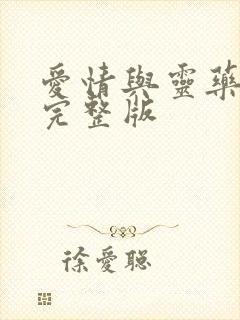 愛情與靈藥
完整版
徐愛聪